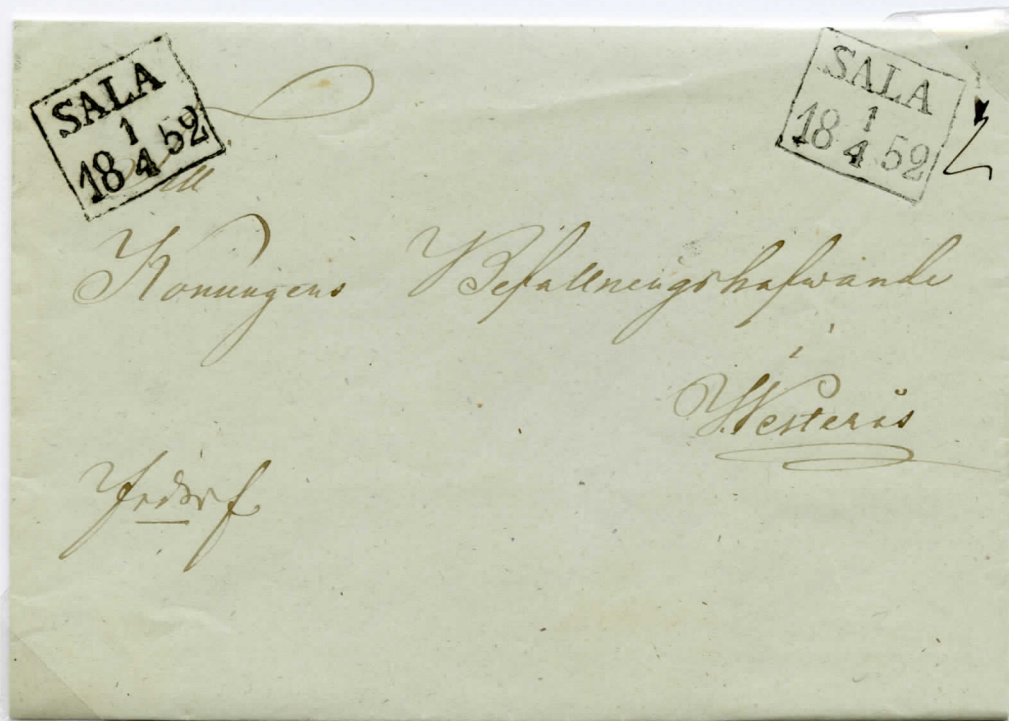 SALA
1
18 4 52
SALA
1
18 4 52
2
Till
Konungens Befallningshafwande
i
Westerås